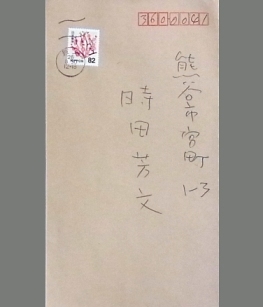 3600041
熊谷市宮町1-3
時田芳文
NIPPON 82